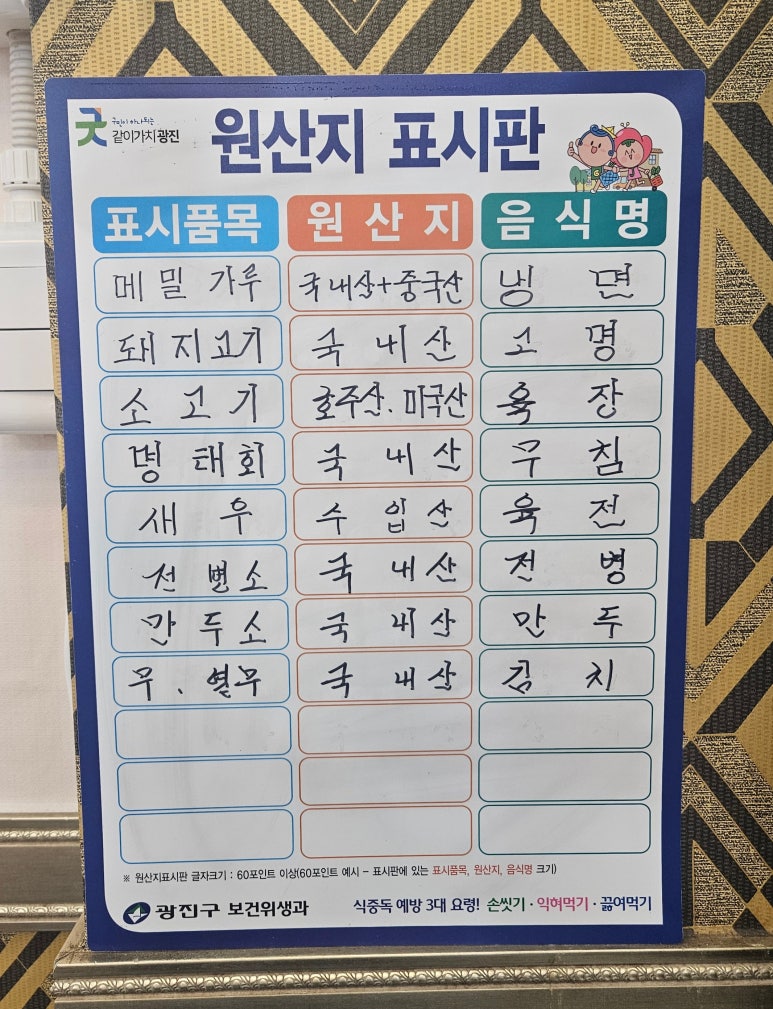 구민이 하나되는
같이가치 광진
원산지 표시판
표시품목 원산지 음식명
메밀가루 국내산+중국산 냉면
돼지고기 국내산 고명
소고기 호주산. 미국산 육장
명태회 국내산 무침
새우 수입산 육전
전병소 국내산 전병
만두소 국내산 만두
무. 열무 국내산 김치
※ 원산지표시판 글자크기 : 60포인트 이상(60포인트 예시 - 표시판에 있는 표시품목, 원산지, 음식명 크기)
광진구 보건위생과 식중독 예방 3대 요령! 손씻기 · 익혀먹기 · 끓여먹기